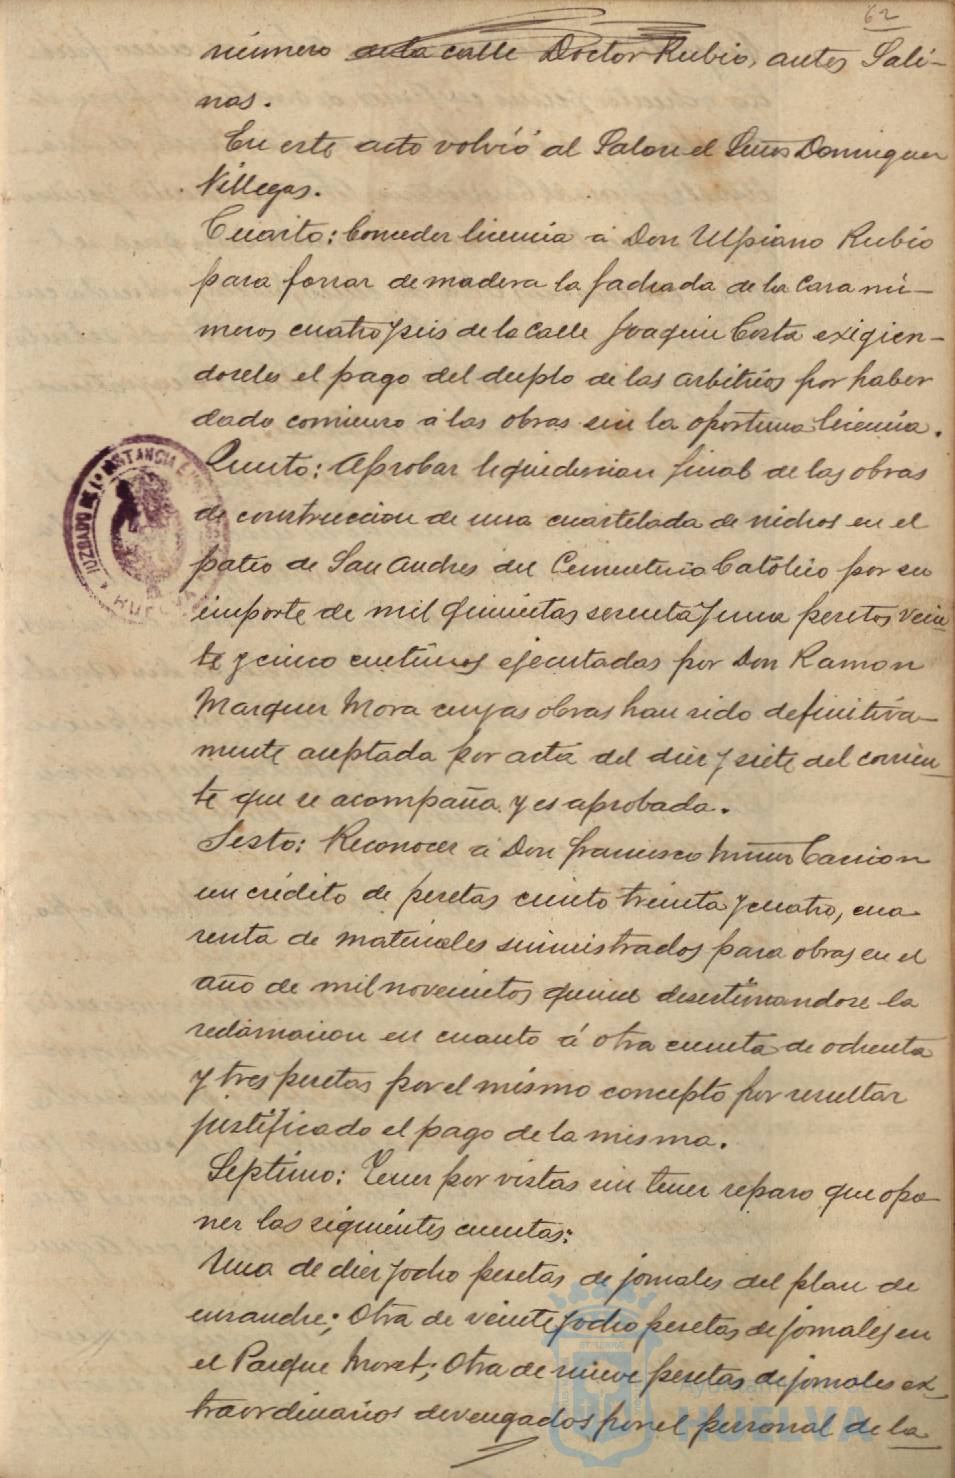 62
número de la calle Doctor Rubio, antes Sali-
nas.
En este acto volvió al Salon el Señor Dominguez
Villegas.
Cuarto: Conceder licencia á Don Ulpiano Rubio
para forrar de madera la fachada de la casa nú-
meros cuatro y seis de la calle Joaquin Costa exigien-
doseles el pago del duplo de las arbitrios por haber
dado comienzo á las obras sin la oportuna licencia.
Quinto: Aprobar liquidacion final de las obras
de construccion de una cuartelada de nichos en el
patio de San Andres del Cementerio Católico por su
importe de mil quinientas sesenta y una pesetas vein-
te y cinco centimos ejecutadas por Don Ramon
Marquez Mora cuyas obras han sido definitiva-
mente aceptada por acta del diez y siete del corrien-
te que se acompaña y es aprobada.
Sesto: Reconocer á Don Francisco Muñoz Carrion
un crédito de pesetas ciento treinta y cuatro, cua-
renta de materiales suministrados para obras en el
año de mil novecientos quince desestimandose la
reclamacion en cuanto á otra cuenta de ochenta
y tres pesetas por el mismo concepto por resultar
justificado el pago de la misma.
Septimo: Tener por vistas sin tener reparo que opo-
ner las siguientes cuentas:
Una de diez y ocho pesetas de jornales del plan de
ensanche; Otra de veinte y ocho pesetas de jornales en
el Parque Moret; Otra de nueve pesetas de jornales ex-
traordinarios devengados por el personal de la
JUZGADO DE 1ª INSTANCIA E
HUELVA
Ayuntamiento de
HUELVA